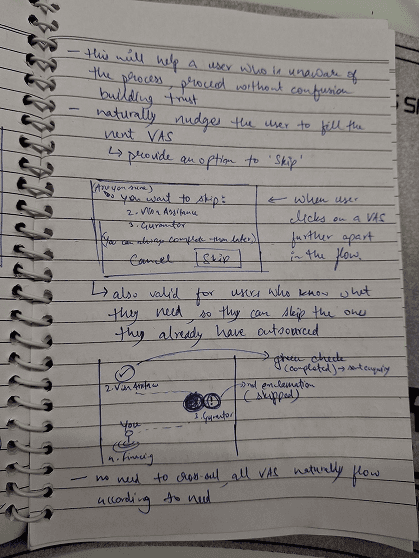 - this will help a user who is unaware of
the process, proceed without confusion
building trust
- naturally nudges the user to fill the
next VAS
↳ provide an option to 'Skip'
(Are you sure)
Do you want to skip:
2. Visa Assitance
3. Gurantor
(You can always complete them later)
Cancel Skip
← when user
clicks on a VAS
further apart
in the flow.
↳ also valid for users who know what
they need, so they can skip the ones
they already have outsourced
green check
(completed) →
2. Visa Assitance
exclamation
(skipped)
3. Gurantor
You
- no need to cross-out, all VAS naturally flow
according to need